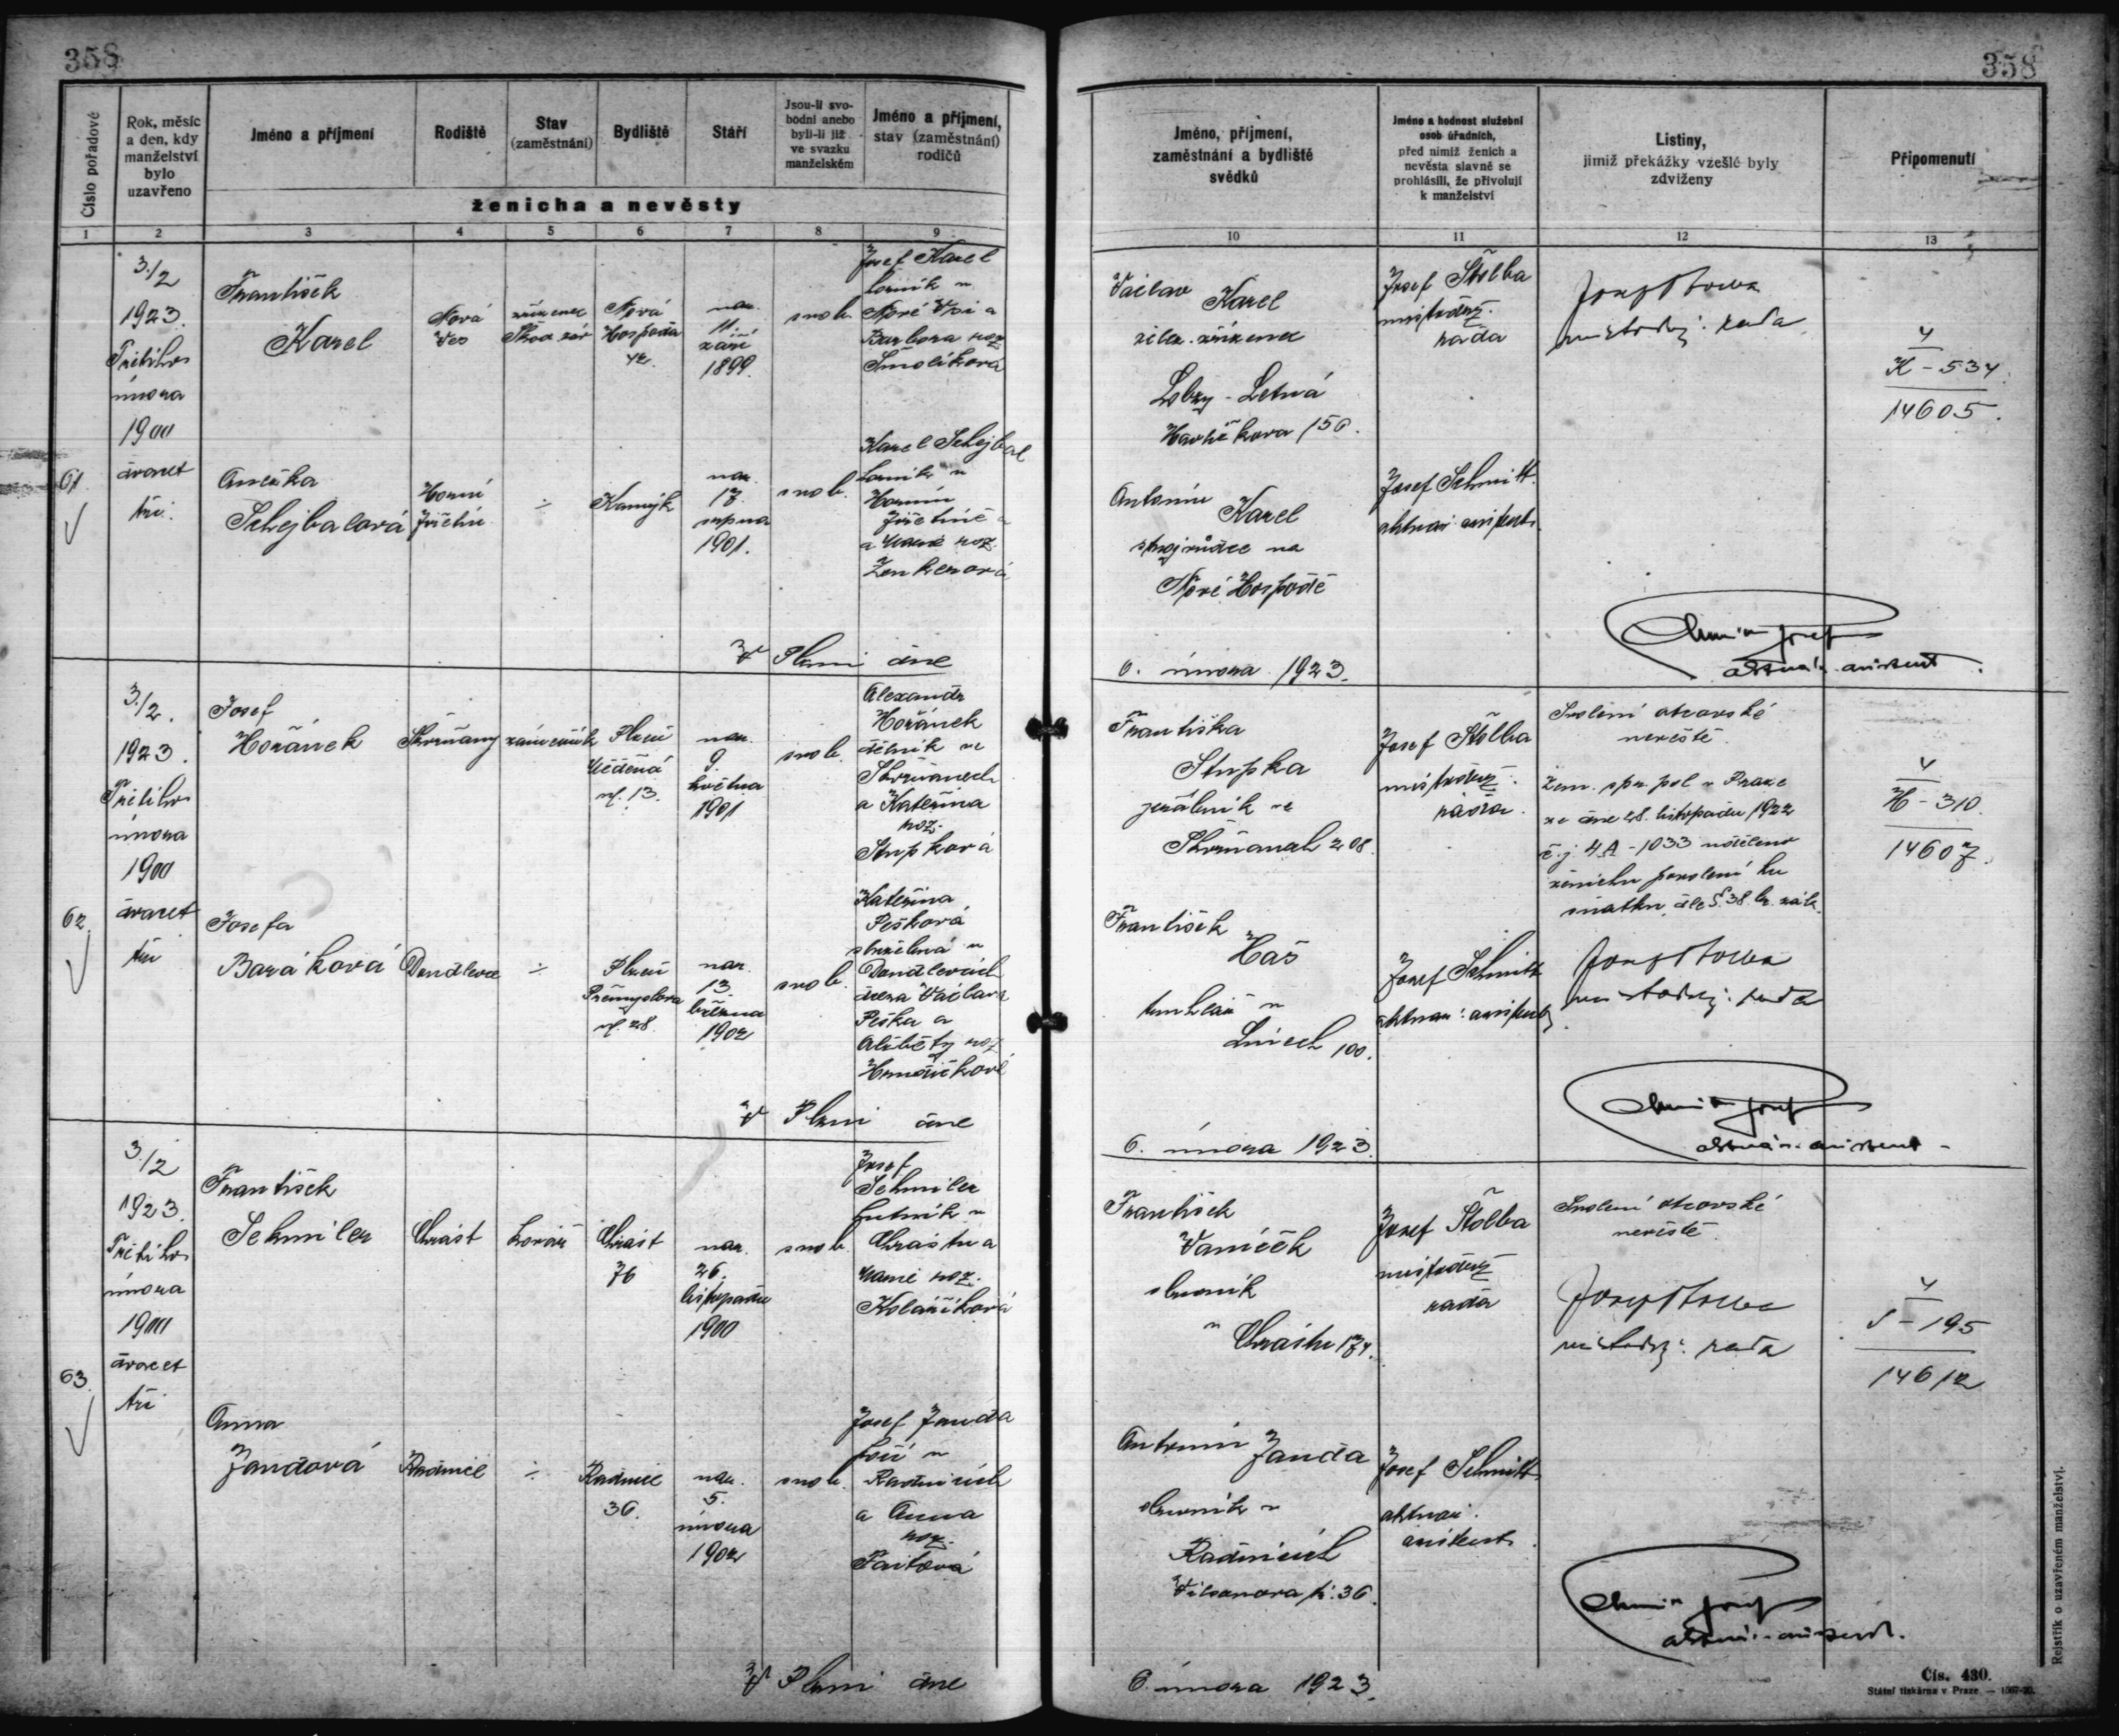 358
358
Číslo pořadové
Rok, měsíc
a den, kdy
manželství
bylo
uzavřeno
Jméno a příjmení
Rodiště
Stav
(zaměstnání)
Bydliště
Stáří
Jsou-li svo-
bodni anebo
byli-li již
ve svazku
manželském
Jméno a příjmení,
stav (zaměstnání)
rodičů
ženicha a nevěsty
Jméno, příjmení,
zaměstnání a bydliště
svědků
Jméno a hodnost služební
osob úřadních,
před nimiž ženich a
nevěsta slavně se
prohlásili, že přivolují
k manželství
Listiny,
jimiž překážky vzešlé byly
zdviženy
Připomenutí
1
2
3
4
5
6
7
8
9
10
11
12
13
61.
3./2
1923.
Třetího
února
1900
dvacet
tři.
František
Karel
Nová
Ves
zřízenec
Škod. záv
Nová
Hospoda
42.
nar.
11.
září
1899.
svob.
Josef Karel
horník v
Nové Vsi a
Barbora roz.
Smolíková
Anežka
Schejbalová
Horní
Jiřetín
÷
Kamýk
nar.
17.
srpna
1901.
svob.
Karel Schejbal
horník v
Horním
Jiřetíně
a Marie roz.
Zenkerová
Václav
Karel
želez. zřízenec
Lobzy - Letná
Havlíčkova 150.
Antonín
Karel
strojvůdce na
Nové Hospodě
Josef Štolba
místodrž.
rada
Josef Schmitt
aktuár. assistent
Josef Štolba
místodrž. rada
4
K - 534.
14605.
V Plzni dne
6. února 1923.
Schmitt Josef
aktuár. assistent.
62.
3./2.
1923.
Třetího
února
1900
dvacet
tři
Josef
Hořánek
Skvrňany
zámečník
Plzeň
Měděná
ul. 13.
nar.
9.
května
1901
svob.
Alexandr
Hořánek
dělník ve
Skvrňanech
a Kateřina
roz.
Stupková
Josefa
Baráková
Doudlevce
÷
Plzeň
Přemyslova
ul. 28.
nar.
13.
března
1902
svob.
Kateřina
Pešková
služebná v
Doudlevcích
dcera Václava
Peška a
Alžběty roz.
Hrudičkové
Františka
Stupka
jeřábník ve
Skvrňanech 208.
František
Háš
truhlář v
Lnících 100.
Josef Štolba
místodrž.
rada.
Josef Schmitt
aktuár. assistent
Svolení otcovské
nevěstě.
Zem. spr. pol. v Praze
ze dne 28. listopadu 1922
č. j. 4A - 1033 uděleno
ženichu povolení ku
sňatku dle § 38. br. zák.
Josef Štolba
místodrž. rada
4
H - 310.
14607.
V Plzni dne
6. února 1923.
Schmitt Josef
aktuár. assistent
63.
3./2
1923.
Třetího
února
1900
dvacet
tři
František
Schmiler
Chrást
kovář
Chrást
76
nar.
26.
listopadu
1900
svob.
Josef
Schmiler
hutník v
Chrástu a
Marie roz.
Kolaříková
Anna
Jandová
Radnice
÷
Radnice
36.
nar.
5.
února
1902
svob.
Josef Janda
kočí v
Radnicích
a Anna
roz.
Paitlová
František
Vaníček
slevník
v Chrástu 174.
Antonín
Janda
slevník v
Radnicích
Wilsonova tř. 36.
Josef Štolba
místodrž.
rada
Josef Schmitt
aktuár.
assistent.
Svolení otcovské
nevěstě.
Josef Štolba
místodrž. rada
4
S - 195
14612
V Plzni dne
6. února 1923.
Schmitt Josef
aktuár. assistent.
Čís. 430.
Státní tiskárna v Praze.
Rejstřík o uzavřeném manželství.